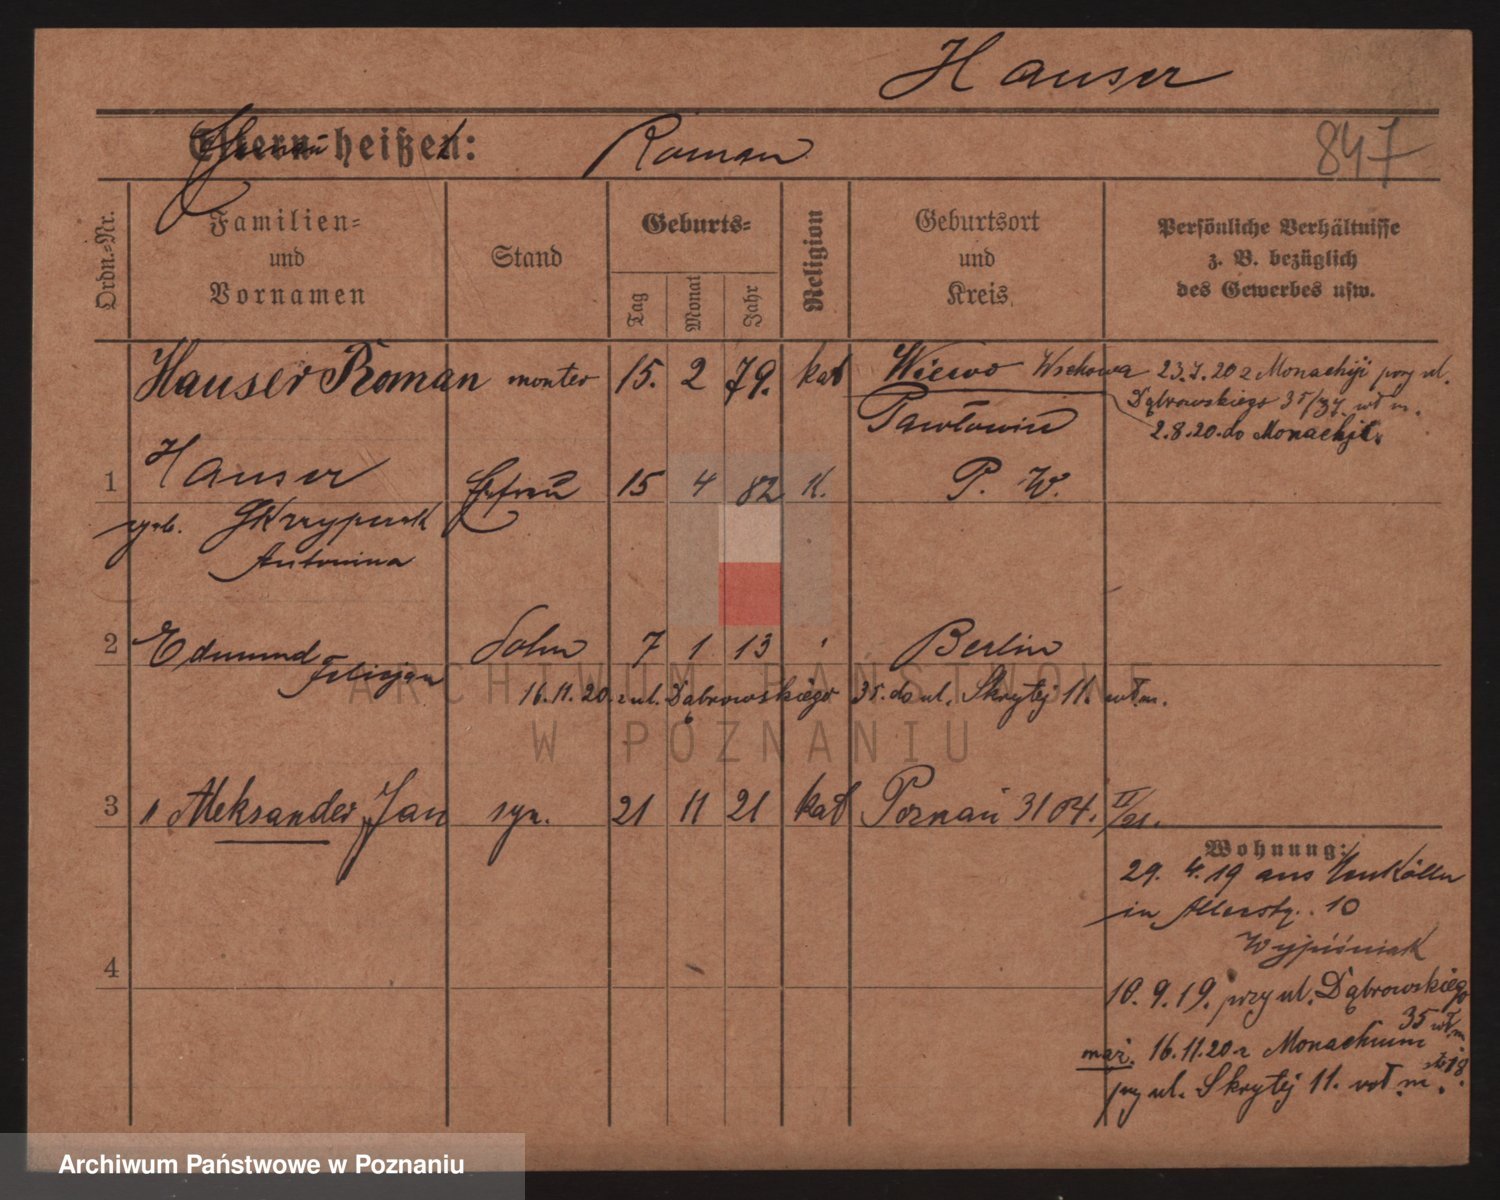 Hauser
Eltern heißen: Roman
847
Ordn.-Nr.
Familien-
und
Vornamen
Stand
Geburts-
Tag
Monat
Jahr
Religion
Geburtsort
und
Kreis
Persönliche Verhältnisse
z. B. bezüglich
des Gewerbes usw.
Hauser Roman monter 15. 2 79. kat Wschowa 23.7.20 z Monachji przy ul.
Dąbrowskiego 35/37 wł m.
2.8.20. do Monachji.
1 Hauser Ehefrau 15 4 82 K. P. W.
geb.
Antonina
2 Edmund Sohn 7 1 13 Berlin
Felicjan
16.11.20. z ul. Dąbrowskiego 35. do ul. Skrytej 11. wł m.
3 Aleksander Jan syn. 21 11 21 kat Poznań 3104. II/21.
Wohnung:
29. 4. 19 aus Neukölln
in Allerstr. 10
10. 9. 19. przy ul. Dąbrowskiego
35 wł m.
mąż. 16.11.20 z Monachium
przy ul. Skrytej 11. wł m.
4
ARCHIWUM PAŃSTWOWE
W POZNANIU
Archiwum Państwowe w Poznaniu